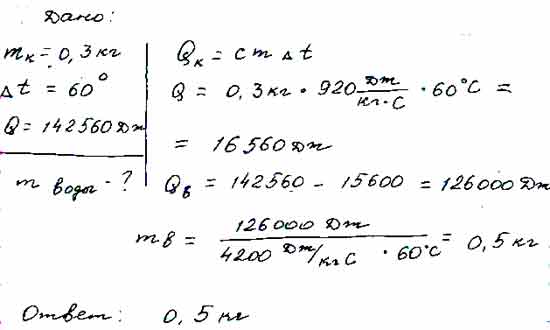 Дано:
mк = 0,3 кг
Δt = 60°
Q = 142560 Дж
m воды - ?
Qк = c m Δt
Q = 0,3 кг · 920 Дж/кг·С · 60°С =
= 16560 Дж
Qв = 142560 - 15600 = 126000 Дж
mв = 126000 Дж / 4200 Дж/кг С · 60°С = 0,5 кг
Ответ: 0,5 кг